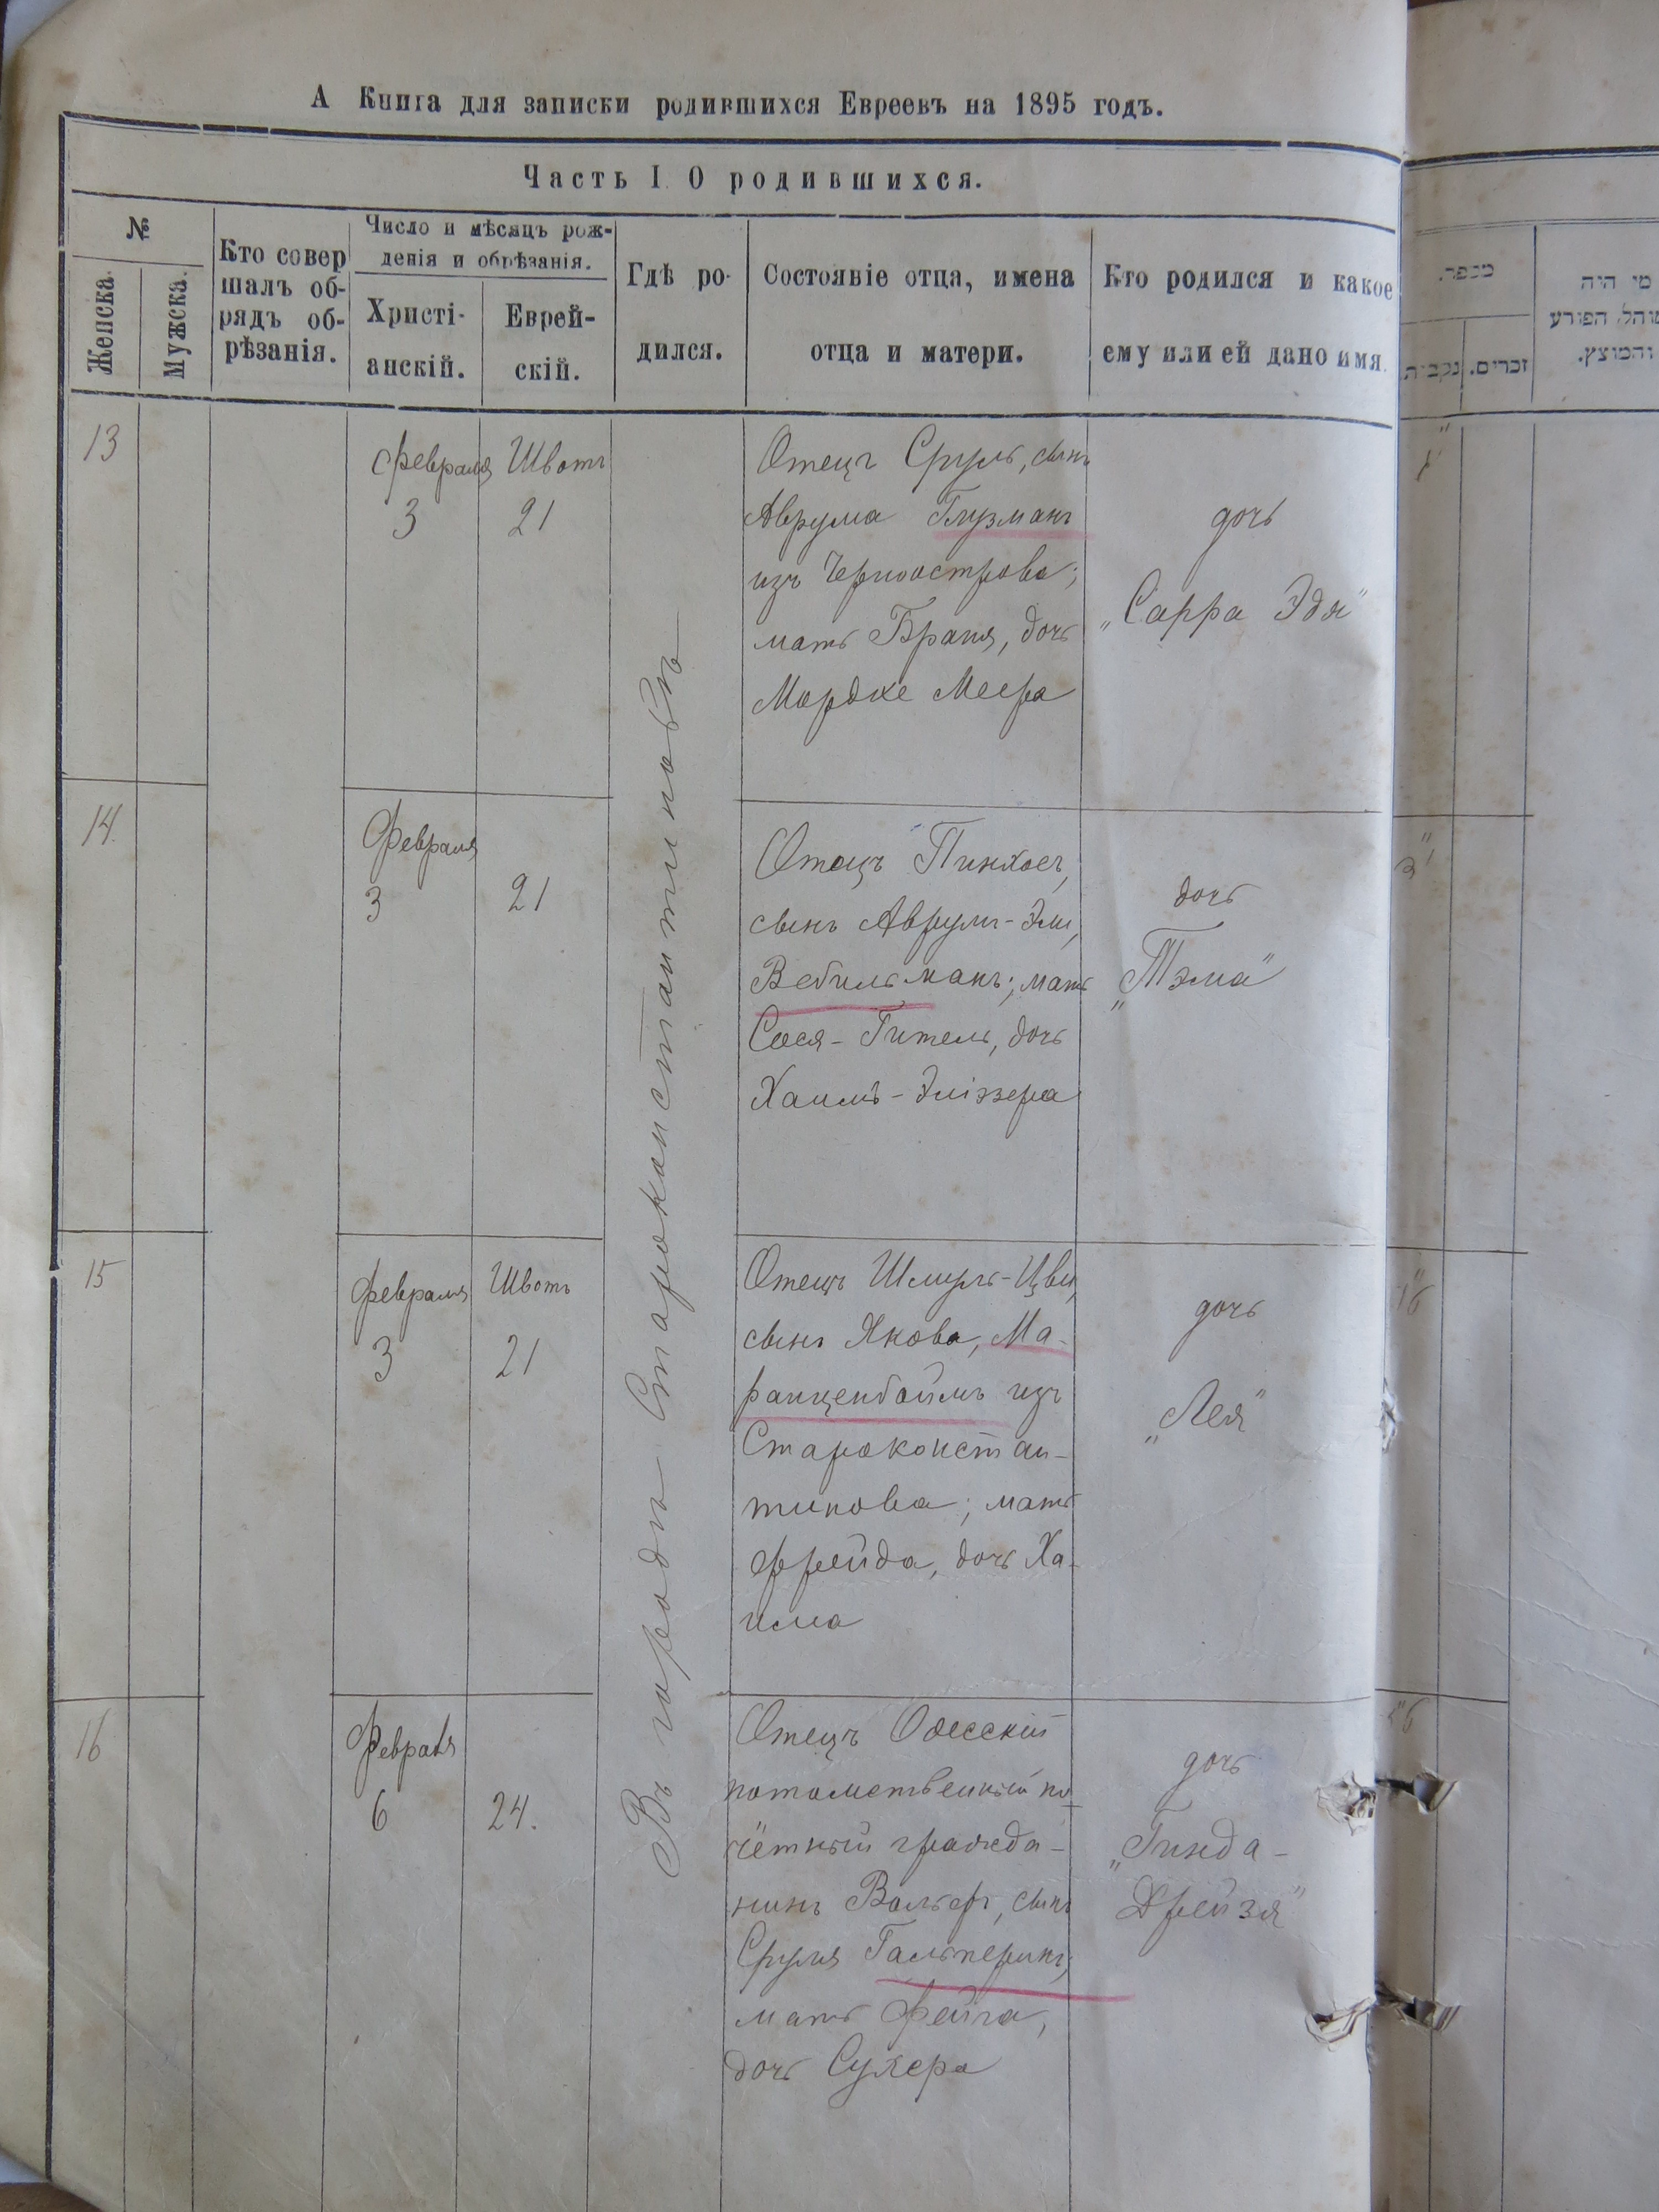 А Книга для записки родившихся Евреевъ на 1895 годъ.
Часть I О родившихся.
№
Женска.
Мужска.
Кто совер
шалъ об-
рядъ об-
рѣзанія.
Число и мѣсяцъ рож-
денія и обрѣзанія.
Христі-
анскій.
Еврей-
скій.
Гдѣ ро-
дился.
Состояніе отца, имена
отца и матери.
Кто родился и какое
ему или ей дано имя.
מספר.
נקבות.
זכרים.
מי היה
מוהל, הפורע
והמוצץ.
Въ городѣ Староконстантиновѣ
13
Февраля
3
Швотъ
21
Отецъ Сруль, сынъ
Аврума Глузманъ
изъ Черноострова;
мать Браня, дочь
Мордке Меера
дочь
„Сарра Эдя"
14.
Февраля
3
21
Отецъ Пинхосъ,
сынъ Аврумъ-Эли,
Вебильманъ; мать
Сося-Гитель, дочь
Хаимъ-Эліэзера
дочь
„Тэма"
15
Февраля
3
Швотъ
21
Отецъ Шмуль-Цви,
сынъ Якова, Ма-
ранценбоймъ изъ
Староконстан-
тинова; мать
Фрейда, дочь Ха-
има
дочь
„Лея"
16
Февраля
6
24.
Отецъ Одесскій
потомственный по-
чётный гражда-
нинъ Вольфъ, сынъ
Сруля Гальперинъ;
мать Фейга,
дочь Сухера
дочь
„Гинда-
Дрейзя"